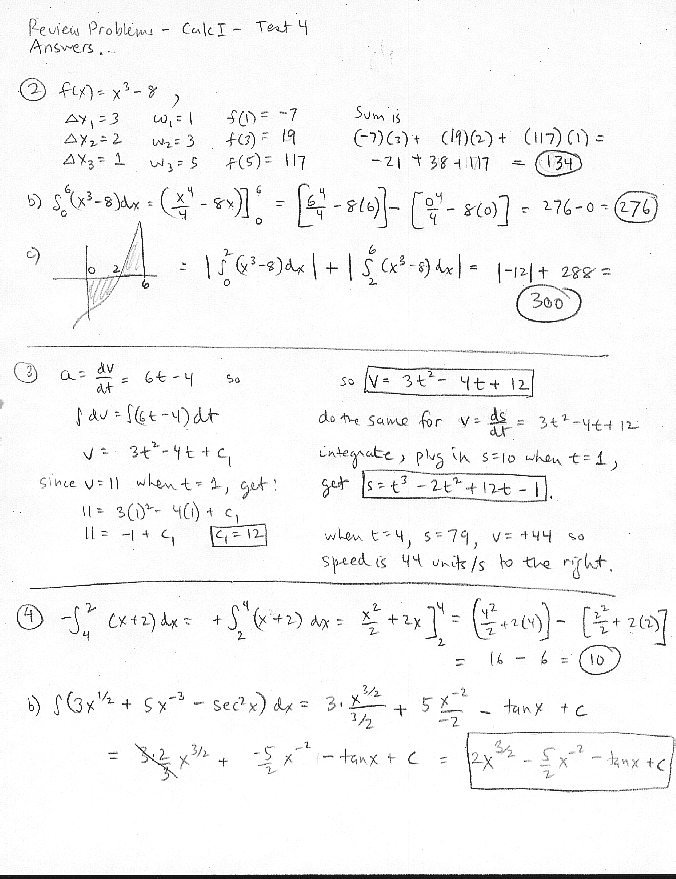 Review Problems - Calc I - Test 4
Answers...
② f(x) = x³ - 8 ,
Δx₁ = 3 w₁ = 1 f(1) = -7 Sum is
Δx₂ = 2 w₂ = 3 f(3) = 19 (-7)(3) + (19)(2) + (117)(1) =
Δx₃ = 1 w₃ = 5 f(5) = 117 -21 + 38 + 117 = 134
b) ∫₀⁶(x³-8)dx = (x⁴/4 - 8x)]₀⁶ = [6⁴/4 - 8(6)] - [0⁴/4 - 8(0)] = 276 - 0 = 276
c) 0 2 6 = |∫₀²(x³-8)dx| + |∫₂⁶(x³-8)dx| = |-12| + 288 =
300
③ a = dv/dt = 6t - 4 so
∫dv = ∫(6t-4)dt
v = 3t² - 4t + c₁
since v = 11 when t = 1, get:
11 = 3(1)² - 4(1) + c₁
11 = -1 + c₁ c₁ = 12
so v = 3t² - 4t + 12
do the same for v = ds/dt = 3t² - 4t + 12
integrate, plug in s=10 when t=1,
get s = t³ - 2t² + 12t - 1.
when t=4, s=79, v=+44 so
speed is 44 units/s to the right.
④ -∫₄²(x+2)dx = +∫₂⁴(x+2)dx = x²/2 + 2x]₂⁴ = (4²/2 + 2(4)] - [2²/2 + 2(2)]
= 16 - 6 = 10
b) ∫(3x^(1/2) + 5x⁻³ - sec²x)dx = 3·x^(3/2)/(3/2) + 5 x⁻²/-2 - tanx + c
= 3·2/3 x^(3/2) + -5/2 x⁻² - tanx + c = 2x^(3/2) - 5/2 x⁻² - tanx + c